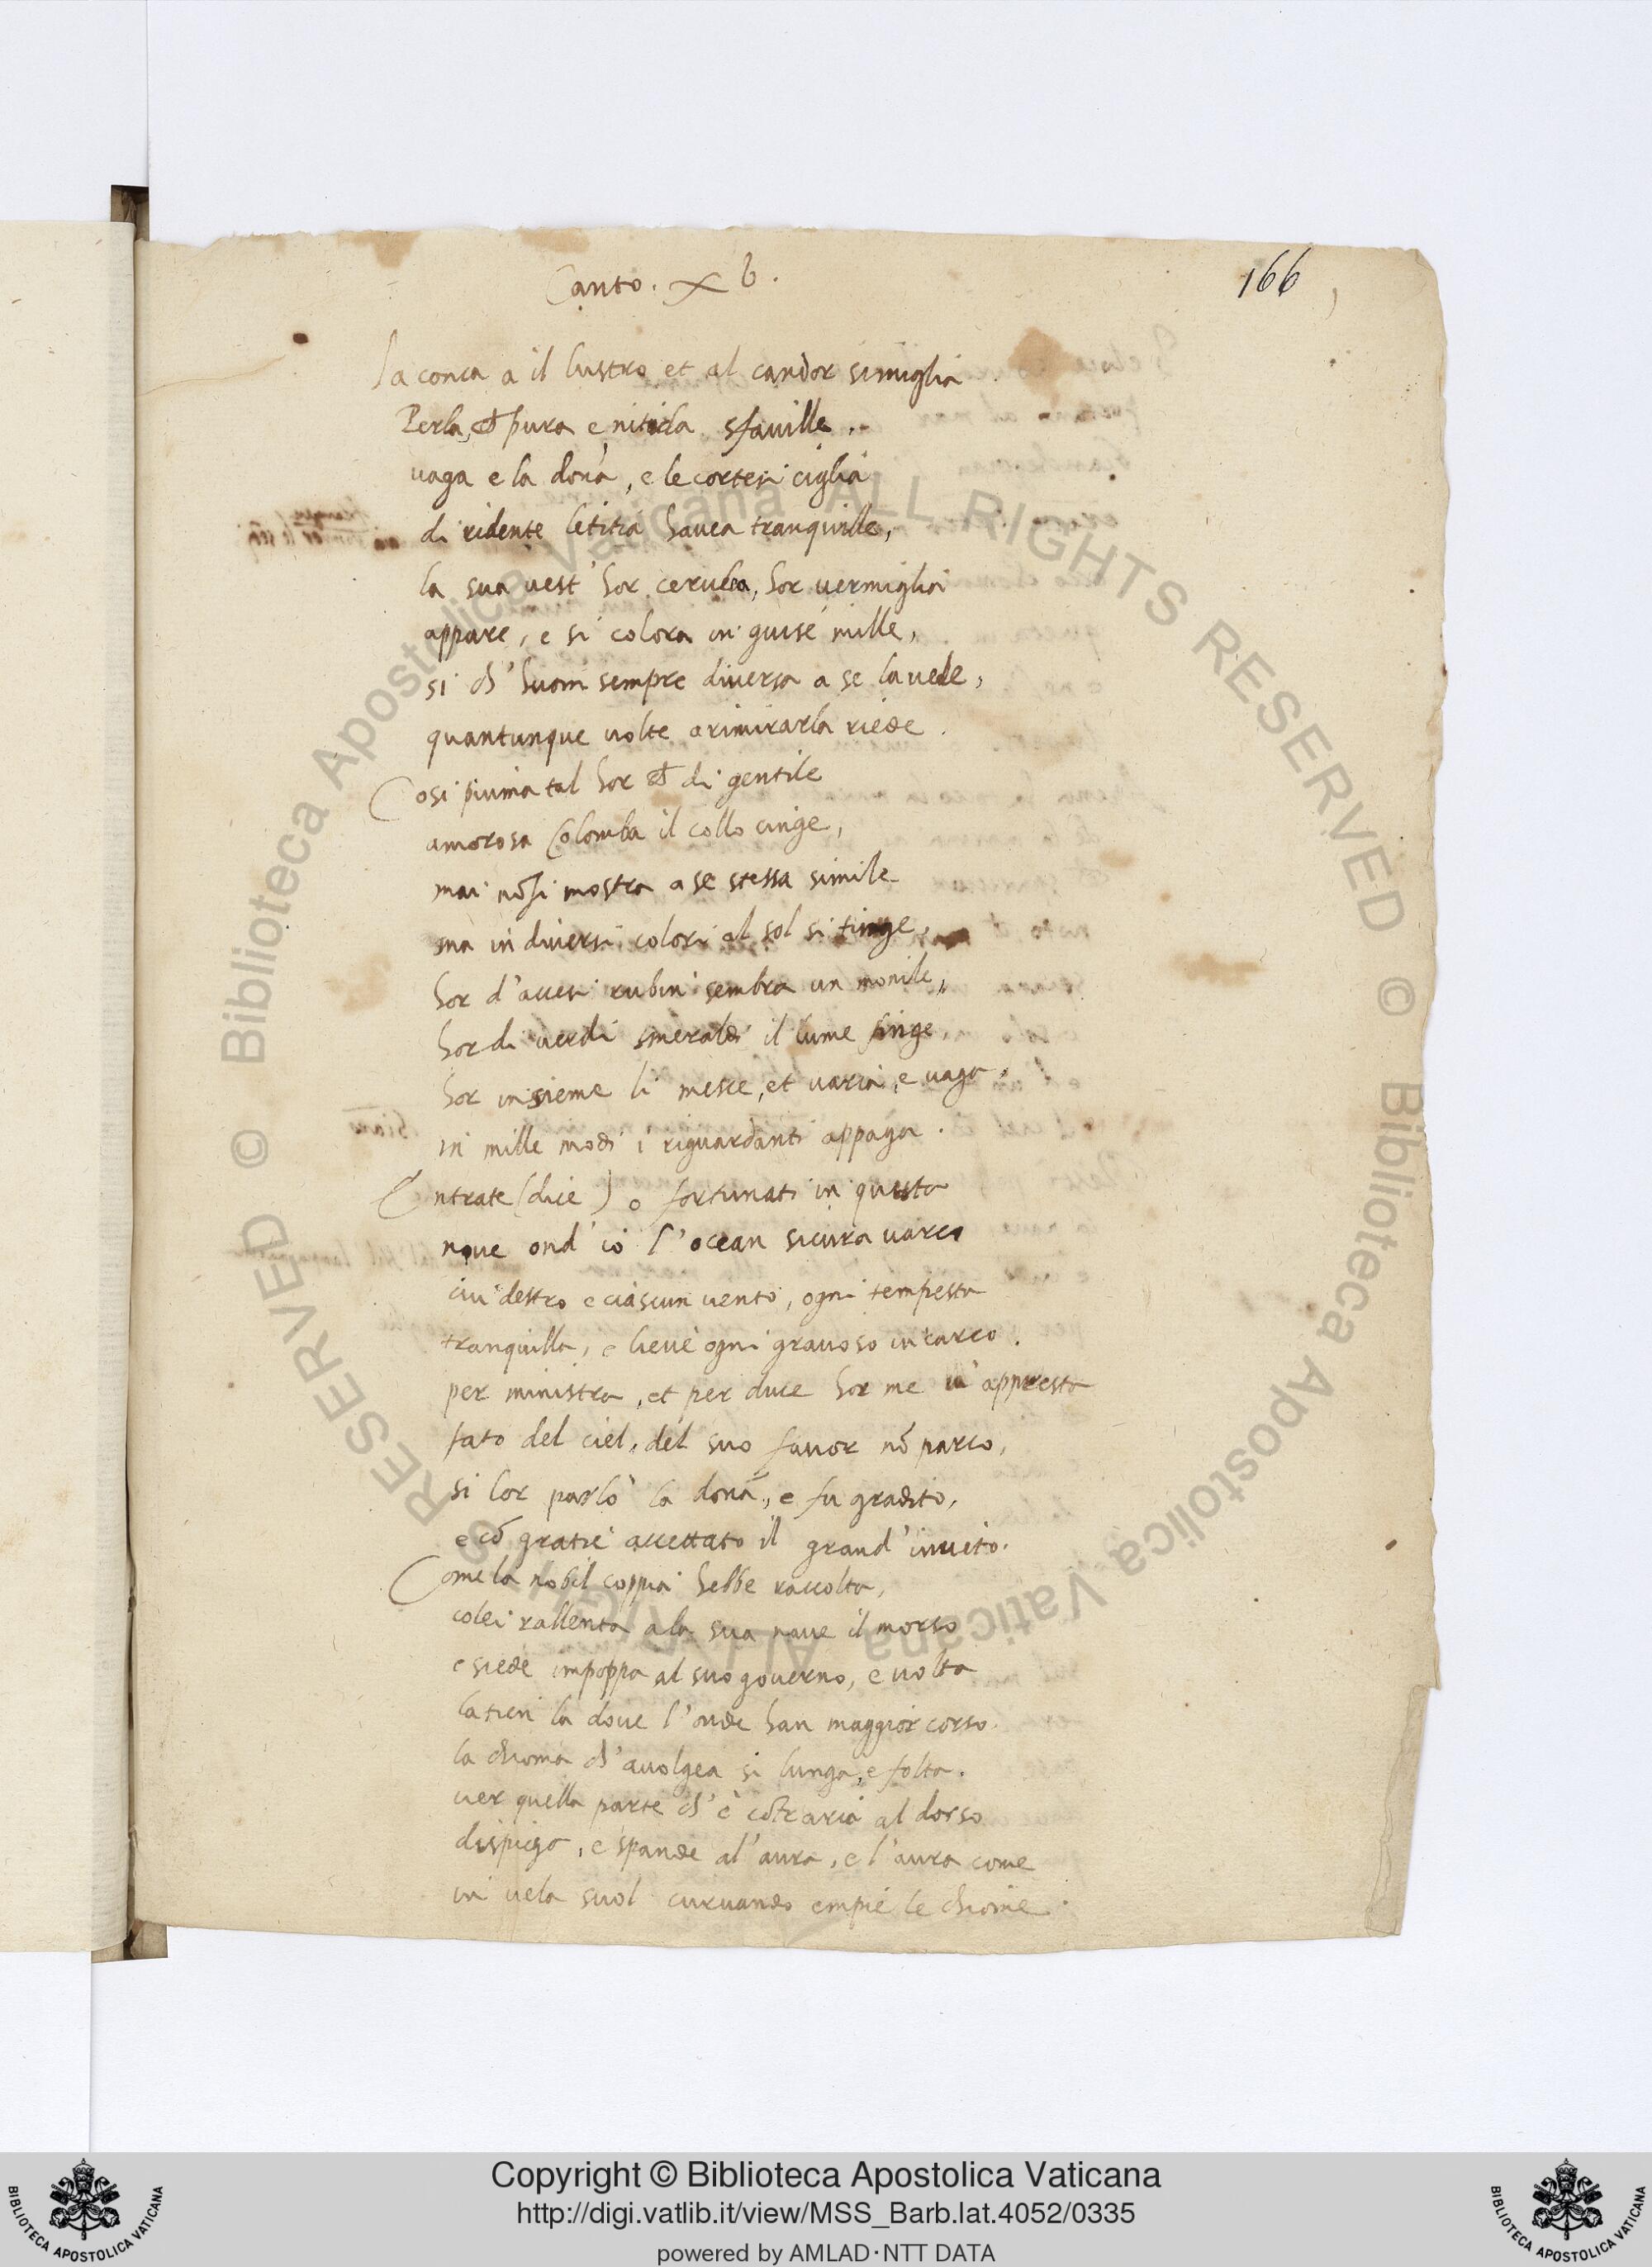 Canto. xb.
166
la conca a il lustro et al candor simiglia
Perla, ch pura e nitida sfaville.
vaga e la donā, e le cortesi ciglia
di ridente letitia havea tranquille,
la sua vest' hor cerulea, hor vermiglia
appare, e si colora in guise mille,
si ch' huom sempre diversa a se la vede,
quantunque volte a rimirarla riede.
Cosi piuma tal hor ch di gentile
amorosa Colomba il collo cinge,
mai nō si mostra a se stessa simile
ma in diversi colori al sol si tinge,
hor d'accesi rubin sembra un monile,
hor di verdi smeraldi il lume finge,
hor insieme li mesce, et varia, e vaga
in mille modi i riguardanti appaga.
Entrate (dice) o fortunati in questa
nave ond' io l'ocean sicura varco
cui destro e ciascun vento, ogni tempesta
tranquilla, e lieve ogni gravoso incarco.
per ministra, et per duce hor me v' appresta
fato del ciel, del suo favor nō parco,
si lor parlò la donā, e fu gradito,
e cō gratie accettato il grand' invito.
Come la nobil coppia hebbe raccolta,
colei rallenta a la sua nave il morso
e siede impoppa al suo governo, e volta
la tien la dove l'onde han maggior corso.
la chioma ch' avolgea si lunga, e folta.
ver quella parte ch' è cōtraria al dorso
dispiega, e spande al' aura, e l'aura come
in vela suol curvando empie le chiome.
© Biblioteca Apostolica Vaticana ALL RIGHTS RESERVED © Biblioteca Apostolica Vaticana ALL RIGHTS RESERVED
Copyright © Biblioteca Apostolica Vaticana
http://digi.vatlib.it/view/MSS_Barb.lat.4052/0335
powered by AMLAD·NTT DATA
BIBLIOTECA APOSTOLICA VATICANA
BIBLIOTECA APOSTOLICA VATICANA